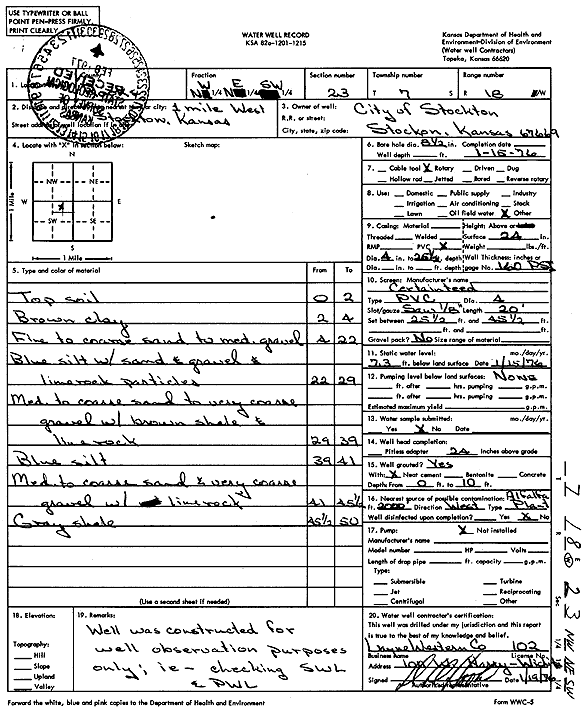 USE TYPEWRITER OR BALL
POINT PEN-PRESS FIRMLY,
PRINT CLEARLY.
WATER WELL RECORD
KSA 82a-1201-1215
Kansas Department of Health and
Environment-Division of Environment
(Water well Contractors)
Topeka, Kansas 66620
Fraction
Section number
Township number
Range number
W 1/4 E 1/4 SW 1/4
23
T 7 S
R 18 W
2. Distance and direction from nearest town or city: 1 mile West
Stockton, Kansas
Street address of well location if in city:
3. Owner of well: City of Stockton
R.R. or street:
City, state, zip code: Stockton, Kansas 67669
4. Locate with "X" in section below:
Sketch map:
N
NW NE
W E
SW SE
S
1 Mile
1 Mile
6. Bore hole dia. 8 1/2 in. Completion date
Well depth ft. 1-15-76
7. Cable tool X Rotary Driven Dug
Hollow rod Jetted Bored Reverse rotary
8. Use: Domestic Public supply Industry
Irrigation Air conditioning Stock
Lawn Oil field water X Other
9. Casing: Material Height: Above or
Threaded Welded Surface 24 in.
RMP PVC X Weight lbs./ft.
Dia. 4 in. to 25 1/2 ft. depth Wall Thickness: inches or
Dia. in. to ft. depth gage No. 160 PSI
10. Screen: Manufacturer's name
Certainteed
Type PVC Dia. 4
Slot/gauze Saw 1/8" Length 20'
Set between 25 1/2 ft. and 45 1/2 ft.
ft. and ft.
Gravel pack? No Size range of material
11. Static water level: mo./day/yr.
7.3 ft. below land surface Date 1/15/76
12. Pumping level below land surfaces: NONE
ft. after hrs. pumping g.p.m.
ft. after hrs. pumping g.p.m.
Estimated maximum yield g.p.m.
13. Water sample submitted: mo./day/yr.
Yes X No Date
14. Well head completion:
Pitless adapter 24 Inches above grade
15. Well grouted? Yes
With: X Neat cement Bentonite Concrete
Depth: From 0 ft. to 10 ft.
16. Nearest source of possible contamination: Alfalfa
ft. 2000 Direction West Type Plant
Well disinfected upon completion? Yes X No
17. Pump: X Not installed
Manufacturer's name
Model number HP Volts
Length of drop pipe ft. capacity g.p.m.
Type:
Submersible Turbine
Jet Reciprocating
Centrifugal Other
5. Type and color of material From To
Top soil 0 2
Brown clay 2 4
Fine to coarse sand to med. gravel 4 22
Blue silt w/ sand & gravel &
limerock particles 22 29
Med to coarse sand to very coarse
gravel w/ brown shele &
limerock 29 39
Blue silt 39 41
Med to coarse sand & very coarse
gravel w/ limerock 41 45 1/2
Gray shele 45 1/2 50
(Use a second sheet if needed)
18. Elevation:
Topography:
Hill
Slope
Upland
Valley
19. Remarks:
Well was constructed for
well observation purposes
only; ie- checking SWL
& PWL
20. Water well contractor's certification:
This well was drilled under my jurisdiction and this report
is true to the best of my knowledge and belief.
Layne Western Co 102
Business name License No.
Address Wichita
Signed Date 1/19/76
Authorized representative
Forward the white, blue and pink copies to the Department of Health and Environment
Form WWC-5
7 18 W 23 NW NE SW